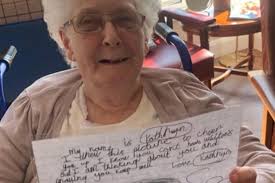 My name is Kathryn
I drew this picture to cheer
you up I know you can't have visitors
but I am thinking about you and
hoping you keep well
Love Kathryn